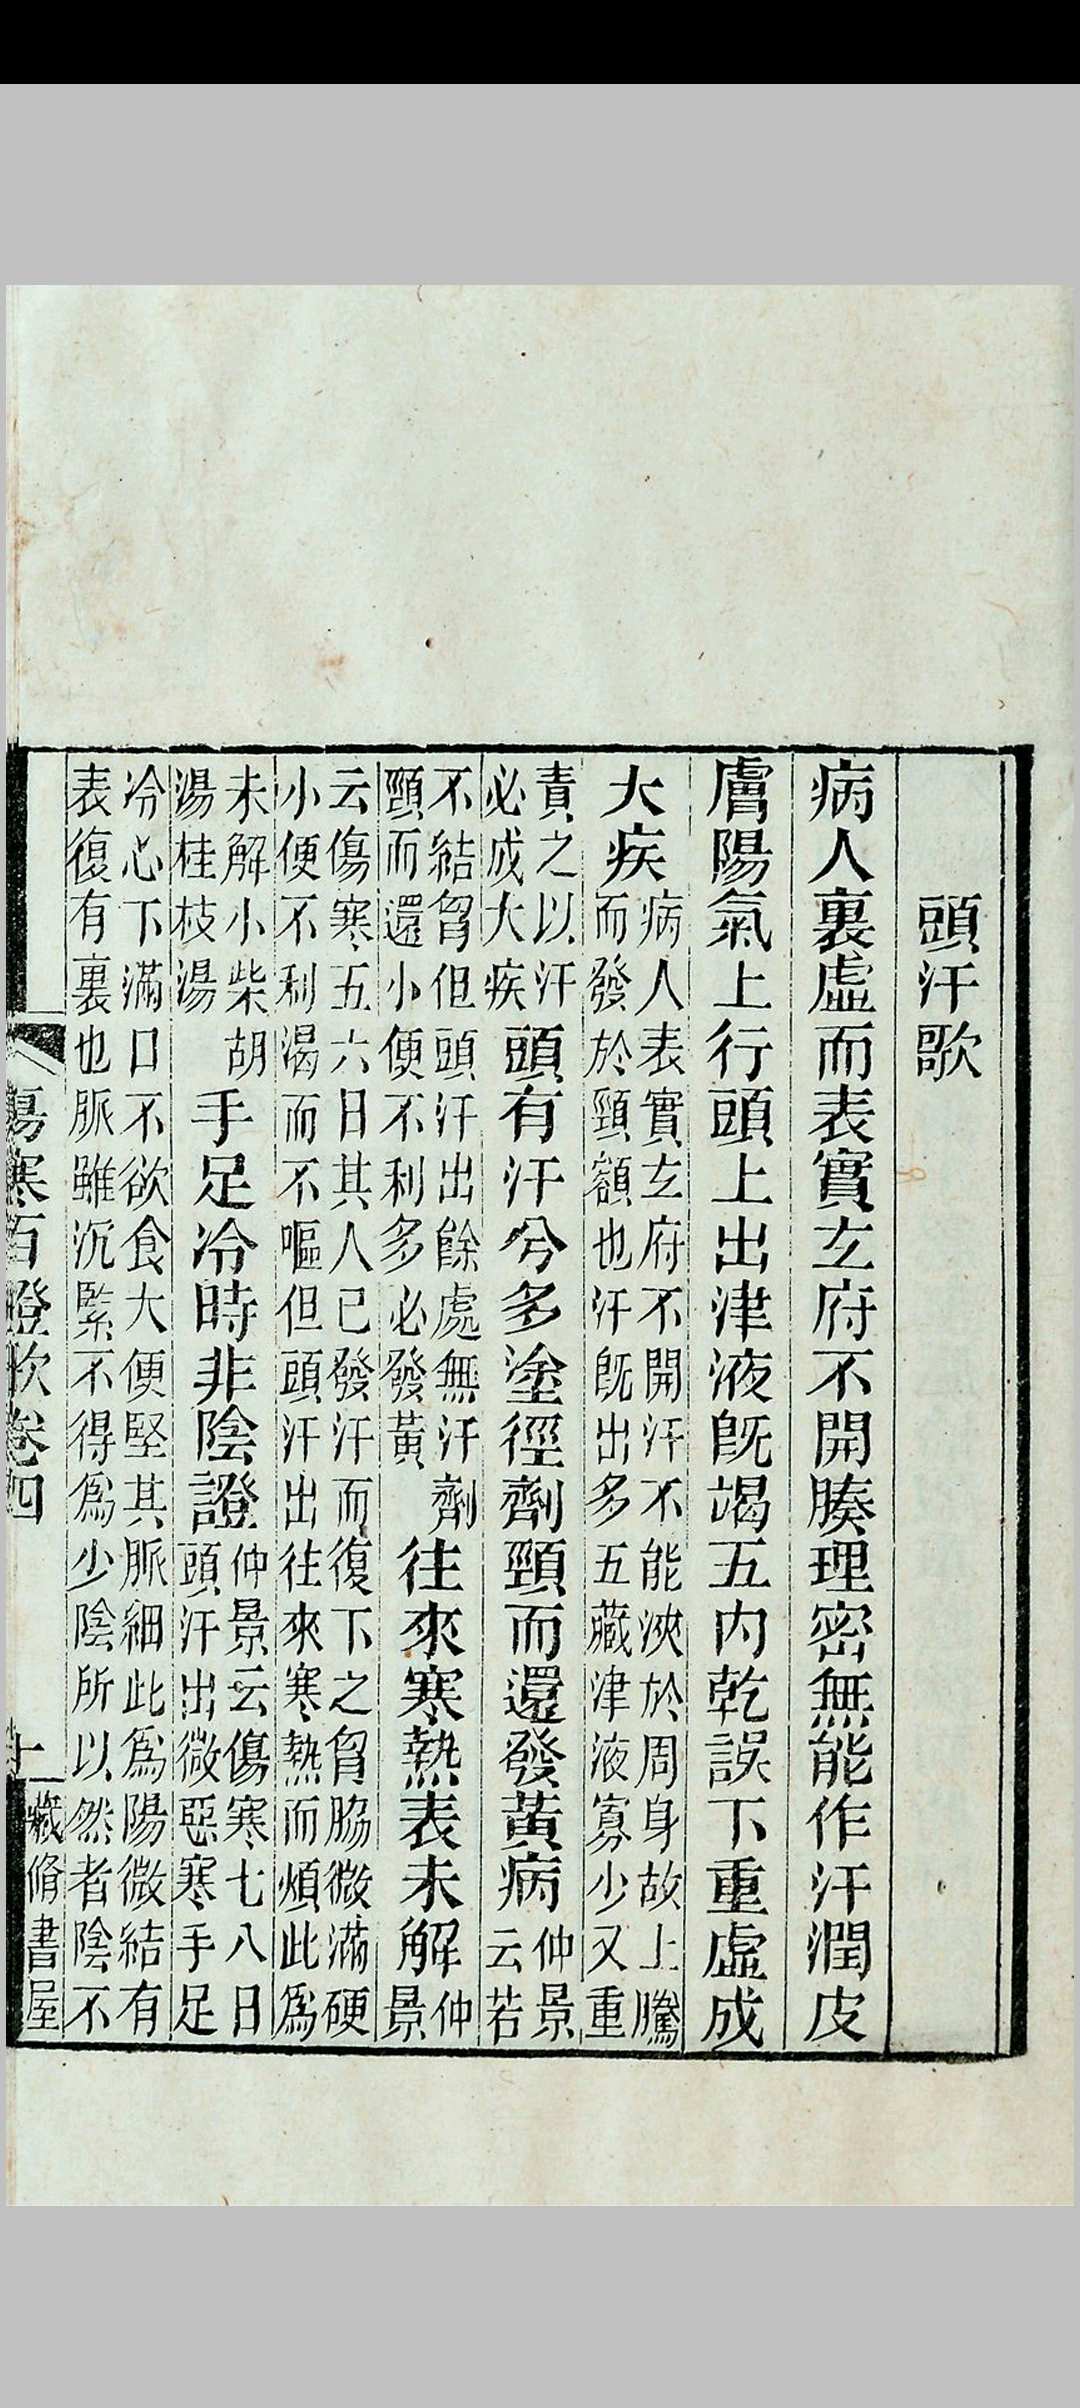 頭汗歌
病人裏虛而表實玄府不開腠理密無能作汗潤皮
膚陽氣上行頭上出津液旣竭五内乾誤下重虛成
大疾
病人表實玄府不開汗不能浹於周身故上騰
而發於頸額也汗旣出多五藏津液寡少又重
責之以汗
必成大疾
頭有汗兮多塗徑劑頸而還發黃病
仲景
云若
不結胷但頭汗出餘處無汗劑
頸而還小便不利多必發黃
往來寒熱表未解
仲
景
云傷寒五六日其人已發汗而復下之胷脇微滿硬
小便不利渴而不嘔但頭汗出往來寒熱而煩此爲
未解小柴胡
湯桂枝湯
手足冷時非陰證
仲景云傷寒七八日
頭汗出微惡寒手足
冷心下滿口不欲食大便堅其脈細此爲陽微結有
表復有裏也脈雖沉緊不得爲少陰所以然者陰不
傷寒百證歌卷四
十
藏脩書屋